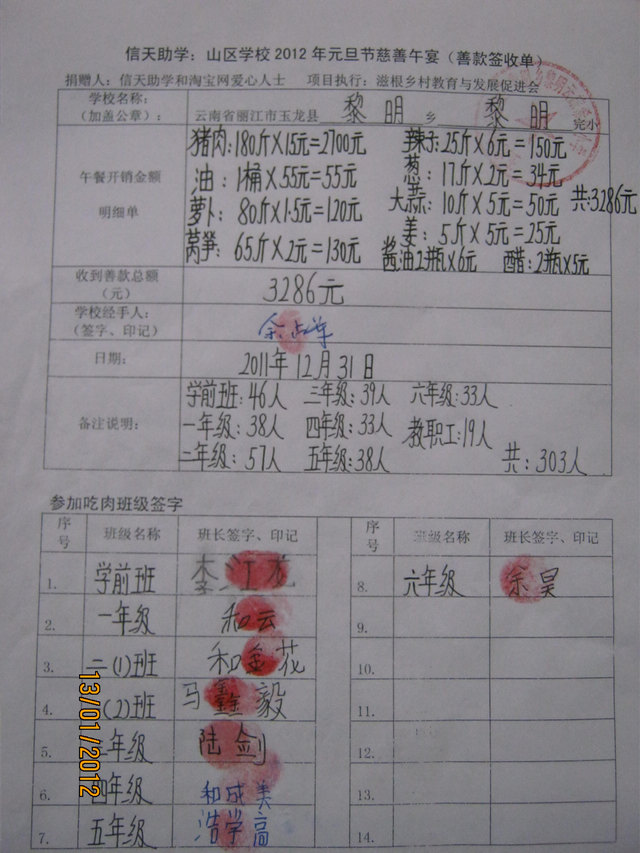 信天助学：山区学校2012年元旦节慈善午宴（善款签收单）
捐赠人：信天助学和淘宝网爱心人士 项目执行：滋根乡村教育与发展促进会
学校名称：
（加盖公章）：
云南省丽江市玉龙县 黎明 乡 黎明 完小
午餐开销金额
明细单
猪肉:180斤×15元=2700元 辣子:25斤×6元=150元
葱：17斤×2元=34元
油：1桶×55元=55元
萝卜：80斤×1.5元=120元 大蒜：10斤×5元=50元 共:3286元
姜：5斤×5元=25元
莴笋：65斤×2元=130元 酱油2瓶×6元 醋：2瓶×5元
收到善款总额
（元）
3286元
学校经手人：
（签字、印记）
日期： 2011年12月31日
备注说明：
学前班：46人 三年级：39人 六年级：33人
一年级：38人 四年级：33人 教职工：19人
二年级：57人 五年级：38人 共：303人
参加吃肉班级签字
序号 班级名称 班长签字、印记 序号 班级名称 班长签字、印记
1. 学前班 李江龙 8. 六年级 余昊
2. 一年级 和云 9.
3. 二(1)班 和金花 10.
4. (2)班 马鑫毅 11.
5. 三年级 陆剑 12.
6. 四年级 和成美 13.
7. 五年级 浩学高 14.
13/01/2012